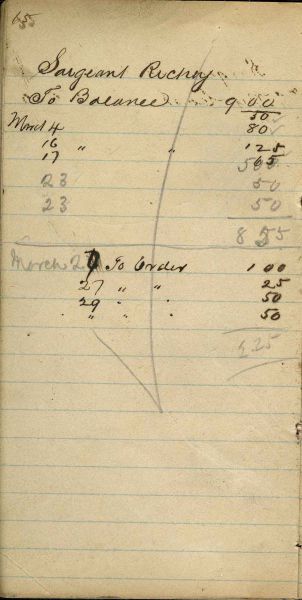 Sargeant Richey
To Balance 9 00
50
March 4 80
16 " " 1 25
17 65
23 50
23 50
8 55
March 27 To Order 1 00
27 " " 25
29 " " 50
" " " 50
2 25